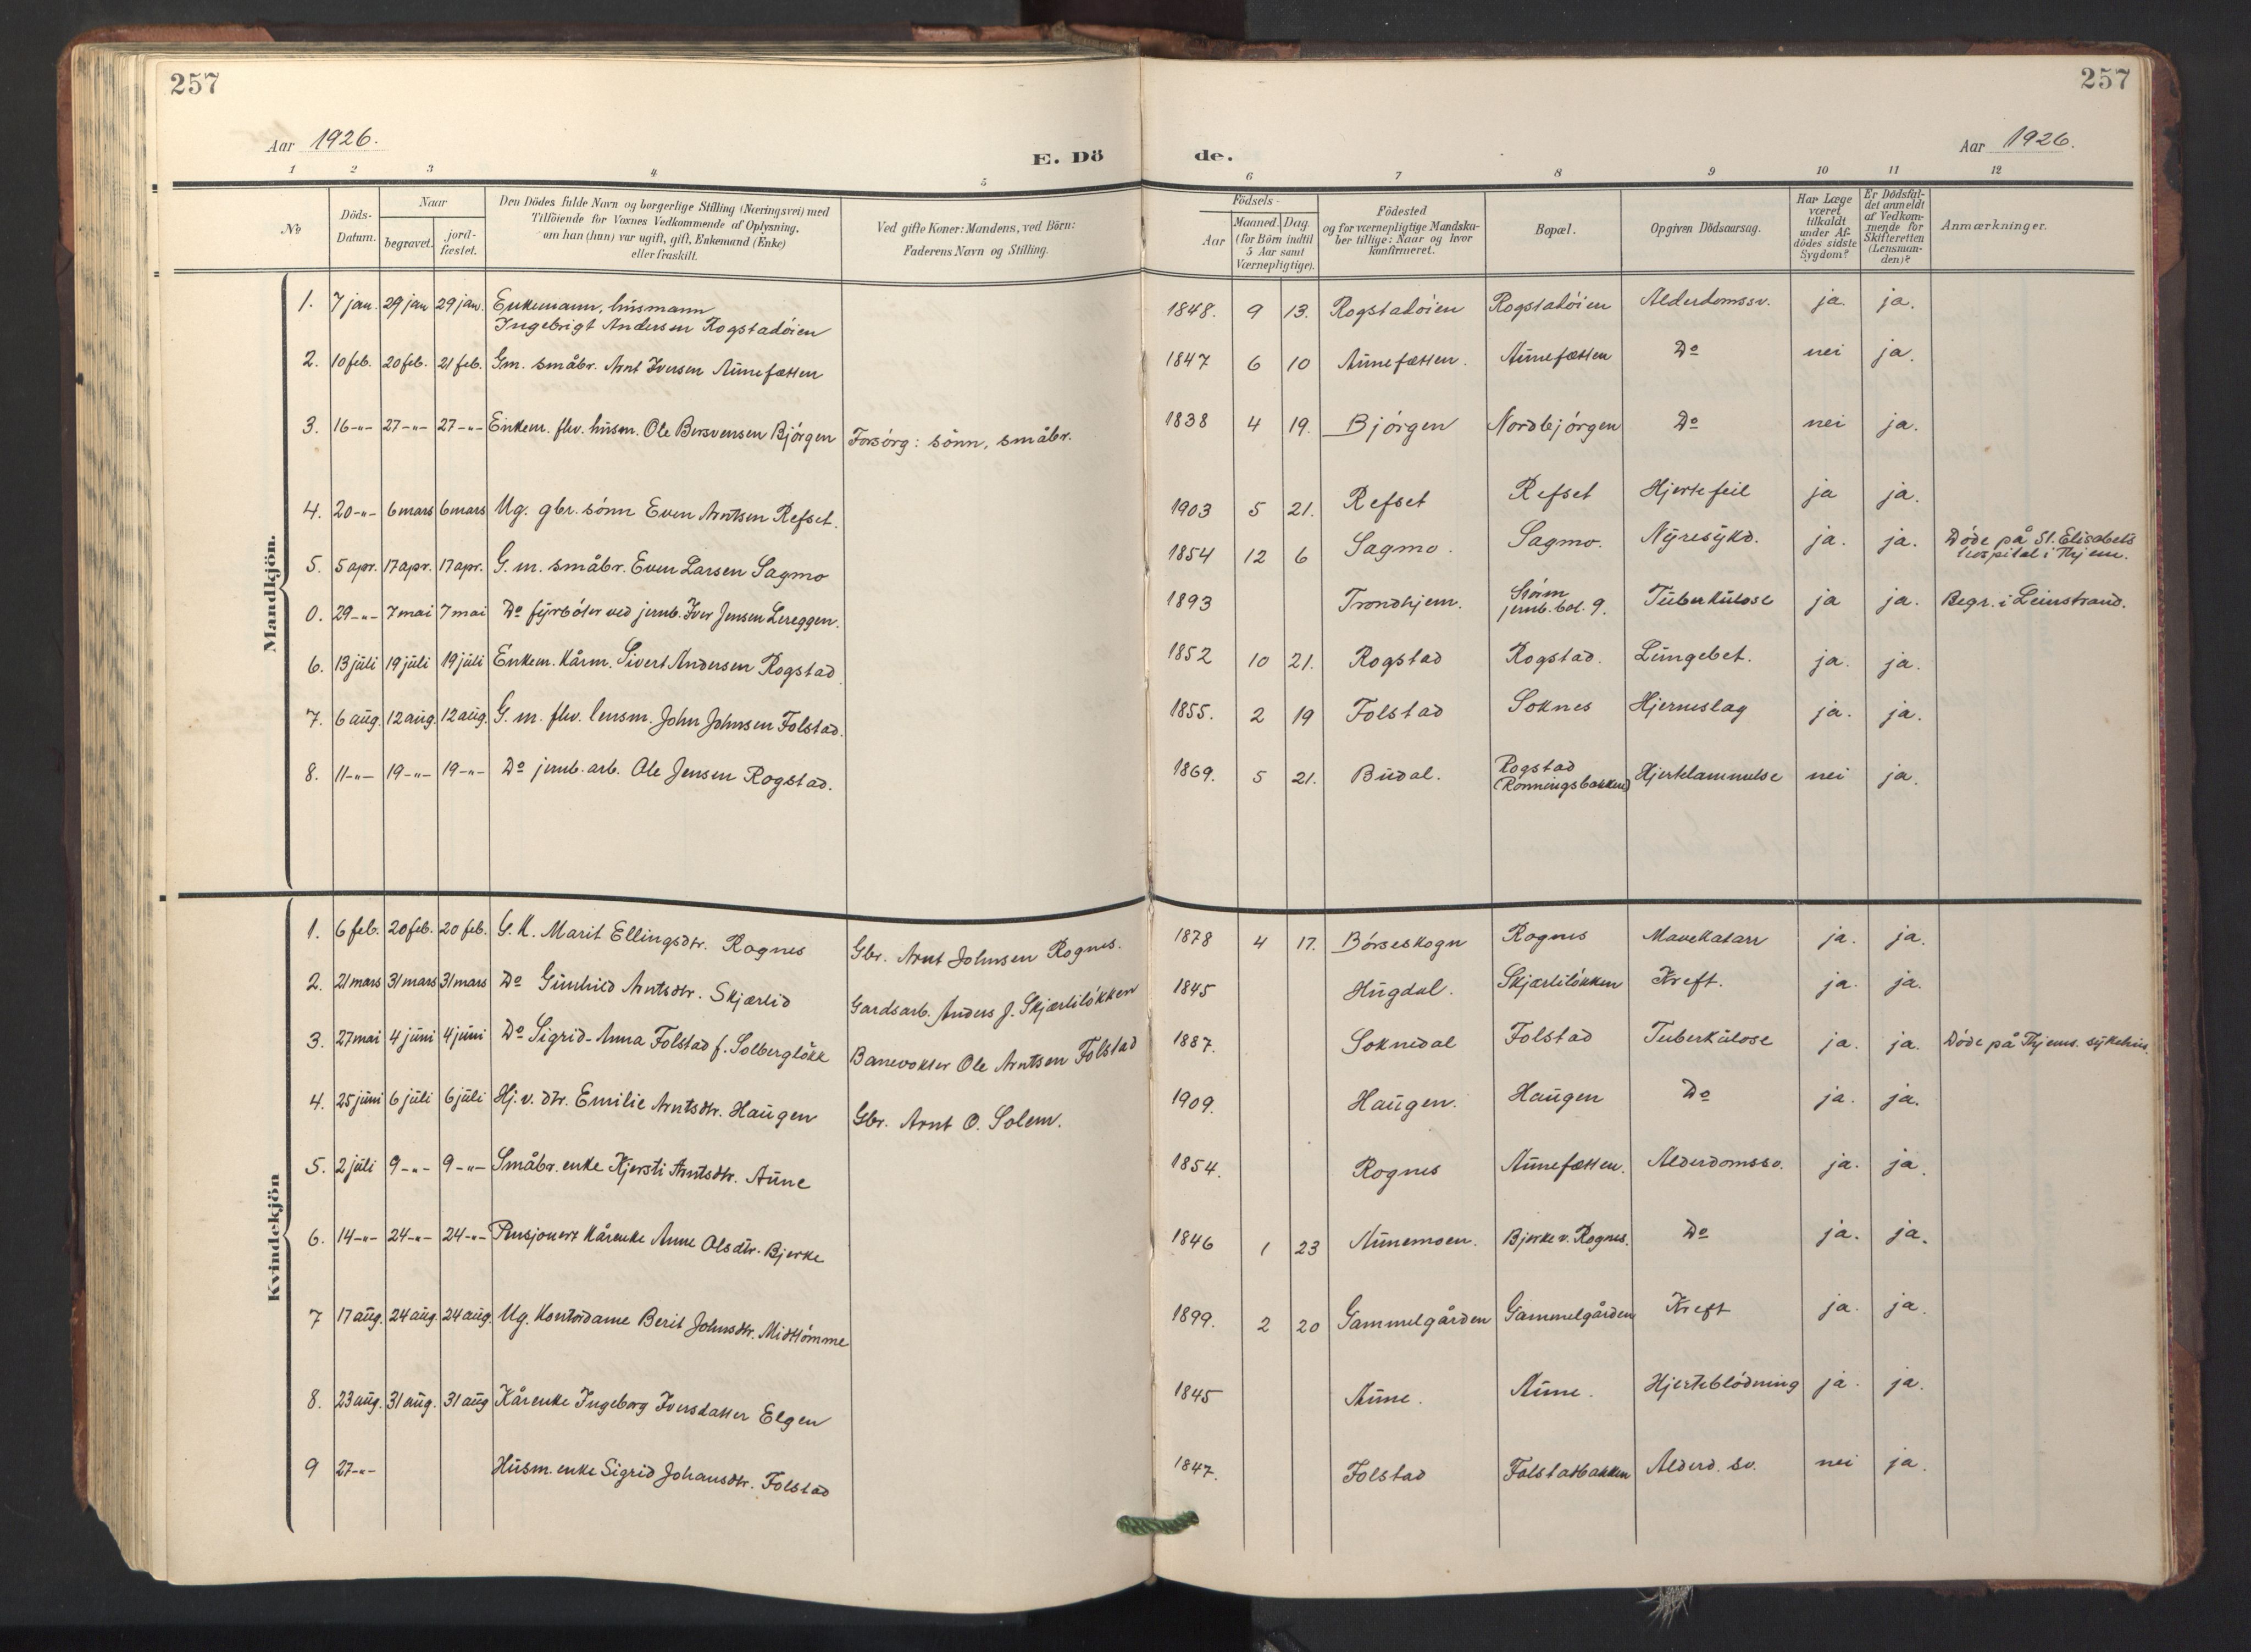 257
257
Aar 1926.
E. Dö
de.
Aar 1926.
1 2 3 4 5 6 7 8 9 10 11 12
№
Döds-Datum.
Naar
begravet.
jord-fæstet.
Den Dödes fulde Navn og borgerlige Stilling (Næringsvei) med
Tilföiende for Voxnes Vedkommende af Oplysning,
om han (hun) var ugift, gift, Enkemand (Enke)
eller fraskilt.
Ved gifte Koner: Mandens, ved Börn:
Faderens Navn og Stilling.
Födsels-
Aar
Maaned. Dag.
(for Börn indtil
5 Aar samt
Værnepligtige).
Födested
og for værnepligtige Mandska-
ber tillige: Naar og hvor
konfirmeret.
Bopæl.
Opgiven Dödsaarsag.
Har Læge
været
tilkaldt
under Af-
dödes sidste
Sygdom?
Er Dödsfal-
det anmeldt
af Vedkom-
mende for
Skifteretten
(Lensman-
den)?
Anmærkninger.
Mandkjön.
1. 7 jan. 29 jan 29 jan. Enkemann, husmann
Ingebrigt Andersen Rogstadöien 1848. 9 13. Rogstadöien Rogstadöien Alderdomssv. ja. ja.
2. 10 feb. 20 feb. 21 feb. Gm. småbr. Arnt Iversen Aunefætten 1847 6 10 Aunefætten. Aunefætten Do nei ja.
3. 16-"- 27-"- 27-"- Enkem. fhv. husm. Ole Bersvensen Bjørgen Forsörg: sönn, småbr. 1838 4 19. Bjørgen Nordbjørgen Do nei ja.
4. 20-"- 6 mars 6 mars Ug. gbr. sönn Even Arntsen Refset. 1903 5 21. Refset Refset Hjertefeil ja ja.
5. 5 apr. 17 apr. 17 apr. G. m. småbr. Even Larsen Sagmo 1854 12 6 Sagmo. Sagmo. Nyresykd. ja. ja. Döde på St. Elisabeths
hospital i Thjem.
0. 29-"- 7 mai 7 mai Do fyrböter ved jernb. Iver Jensen Lereggen. 1893 Trondhjem. Stören
jernb. bol. 9. Tuberkulose ja ja. Begr. i Leinstrand.
6. 13 juli 19 juli 19 juli Enkem. kårm. Sivert Andersen Rogstad 1852 10 21. Rogstad Rogstad. Lungebet. ja. ja.
7. 6 aug. 12 aug. 12 aug. G. m. fhv. lensm. John Johnsen Folstad. 1855. 2 19 Folstad Soknes Hjerneslag ja. ja.
8. 11-"- 19-"- 19-"- Do jernb. arb. Ole Jensen Rogstad. 1869. 5 21. Budal. Rogstad
(Rönningsbakken) Hjertelammelse nei ja.
Kvindekjön
1. 6 feb. 20 feb. 20 feb. G. K. Marit Ellingsdtr. Rognes Gbr. Arnt Johnsen Rognes. 1878 4 17. Börseskogn Rognes Mavekatarr ja. ja.
2. 21 mars 31 mars 31 mars Do Gunhild Arntsdtr. Skjærlid Gardsarb. Anders J. Skjærlilökken 1845 Hugdal. Skjærlilökken Kreft. ja. ja.
3. 27 mai 4 juni 4 juni Do Sigrid-Anna Folstad f. Solberglökk Banevokter Ole Arntsen Folstad 1887. Soknedal Folstad Tuberkulose ja. ja. Döde på Thjems. sykehus.
4. 25 juni 6 juli 6 juli Hj. v. dtr. Emilie Arntsdtr. Haugen Gbr. Arnt O. Solem. 1909. Haugen. Haugen Do ja. ja.
5. 2 juli 9-"- 9-"- Småbr. enke Kjersti Arntsdtr. Aune 1854. Rognes Aunefætten. Alderdomssv. ja. ja.
6. 14-"- 24-"- 24-"- Pensjonert kårenke Anne Olsdtr. Bjerke 1846 1 23 Aunemoen. Bjerke v. Rognes. Do ja. ja.
7 17 aug. 24 aug. 24 aug. Ug. Kontordame Berit Johnsdtr. Midttömme 1899. 2 20 Gammelgården Gammelgården Kreft ja. ja.
8. 23 aug. 31 aug. 31 aug Kårenke Ingeborg Iversdatter Elgen 1845 Aune. Aune. Hjerteblödning ja. ja.
9 27-"- Husm. enke Sigrid Johansdtr. Folstad 1847. Folstad Folstadbakken Alderd. sv. nei ja.